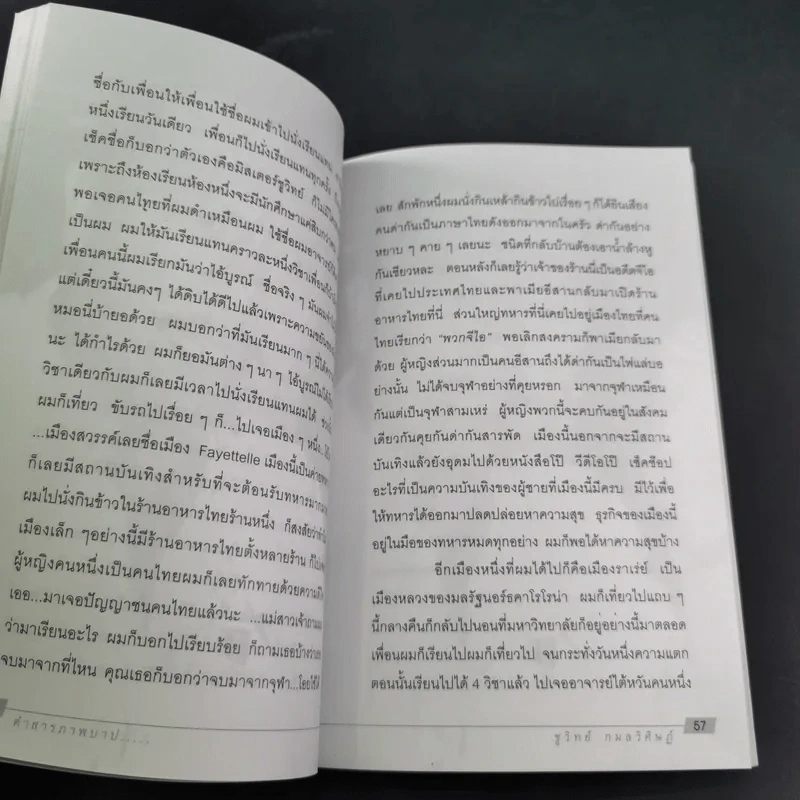 ชื่อกับเพื่อนให้เพื่อนใช้ชื่อผมเข้าไปนั่งเรียนแทน
หนึ่งเรียนวันเดียว เพื่อนก็ไปนั่งเรียนแทนทุกครั้ง
เช็คชื่อก็บอกว่าตัวเองคือมิสเตอร์ชูวิทย์ ก็ไม่มี
เพราะถึงห้องเรียนห้องหนึ่งจะมีนักศึกษาแค่สิบกว่า
พอเจอคนไทยที่ผมดำเหมือนผม ใช้ชื่อผมอาจารย์
เป็นผม ผมให้มันเรียนแทนคราวละหนึ่งวิชาเพื่อน
เพื่อนคนนี้ผมเรียกมันว่าไอ้บูรณ์ ชื่อจริง ๆ มัน
แต่เดี๋ยวนี้มันคงๆ ได้ดิบได้ดีไปแล้วเพราะความขยัน
หมอนี่บ้ายอด้วย ผมบอกว่าที่มันเรียนมาก ๆ นี่
นะ ได้กำไรด้วย ผมก็ยอมันต่าง ๆ นา ๆ ไอ้บูรณ์
วิชาเดียวกับผมก็เลยมีเวลาไปนั่งเรียนแทนผมได้
ผมก็เที่ยว ขับรถไปเรื่อย ๆ ก็...ไปเจอเมือง ๆ หนึ่ง
...เมืองสวรรค์เลยชื่อเมือง Fayettelle เมืองนี้เป็น
ก็เลยมีสถานบันเทิงสำหรับที่จะต้อนรับทหาร
ผมไปนั่งกินข้าวในร้านอาหารไทยร้านหนึ่ง ก็สงสัย
เมืองเล็ก ๆอย่างนี้มีร้านอาหารไทยตั้งหลายร้าน
ผู้หญิงคนหนึ่งเป็นคนไทยผมก็เลยทักทายด้วย
เออ...มาเจอปัญญาชนคนไทยแล้วนะ ...แม่สาวเจ้าถาม
ว่ามาเรียนอะไร ผมก็บอกไปเรียบร้อย ก็ถามเธอบ้าง
จบมาจากที่ไหน คุณเธอก็บอกว่าจบมาจากจุฬา...
คำสารภาพบาป.....
เลย สักพักหนึ่งผมนั่งกินเหล้ากินข้าวไปเรื่อย ๆ ก็ได้ยินเสียง
คนด่ากันเป็นภาษาไทยดังออกมาจากในครัว ด่ากันอย่าง
หยาบ ๆ คาย ๆ เลยนะ ชนิดที่กลับบ้านต้องเอาน้ำล้างหู
กันเชียวหละ ตอนหลังก็เลยรู้ว่าเจ้าของร้านนี้เป็นอดีตจีไอ
ที่เคยไปประเทศไทยและพาเมียอีสานกลับมาเปิดร้าน
อาหารไทยที่นี่ ส่วนใหญ่ทหารที่นี่เคยไปอยู่เมืองไทยที่คน
ไทยเรียกว่า “พวกจีไอ” พอเลิกสงครามก็พาเมียกลับมา
ด้วย ผู้หญิงส่วนมากเป็นคนอีสานถึงได้ด่ากันเป็นไฟแล่บอ
อย่างนั้น ไม่ได้จบจุฬาอย่างที่คุยหรอก มาจากจุฬาเหมือน
กันแต่เป็นจุฬาสามเหร่ ผู้หญิงพวกนี้จะคบกันอยู่ในสังคม
เดียวกันคุยกันด่ากันสารพัด เมืองนี้นอกจากจะมีสถาน
บันเทิงแล้วยังอุดมไปด้วยหนังสือโป๊ วีดีโอโป๊ เซ็คช็อป
อะไรที่เป็นความบันเทิงของผู้ชายที่เมืองนี้มีครบ มีไว้เพื่อ
ให้ทหารได้ออกมาปลดปล่อยหาความสุข ธุรกิจของเมืองนี้
อยู่ในมือของทหารหมดทุกอย่าง ผมก็พอได้หาความสุขบ้าง
อีกเมืองหนึ่งที่ผมได้ไปก็คือเมืองราเร่ย์ เป็น
เมืองหลวงของมลรัฐนอร์ธคาโรโรน่า ผมก็เที่ยวไปแถบ ๆ
นี้กลางคืนก็กลับไปนอนที่มหาวิทยาลัยก็อยู่อย่างนี้มาตลอด
เพื่อนผมก็เรียนไปผมก็เที่ยวไป จนกระทั่งวันหนึ่งความแตก
ตอนนั้นเรียนไปได้ 4 วิชาแล้ว ไปเจออาจารย์ไต้หวันคนหนึ่ง
57
ชูวิทย์ กมลวิศิษฎ์